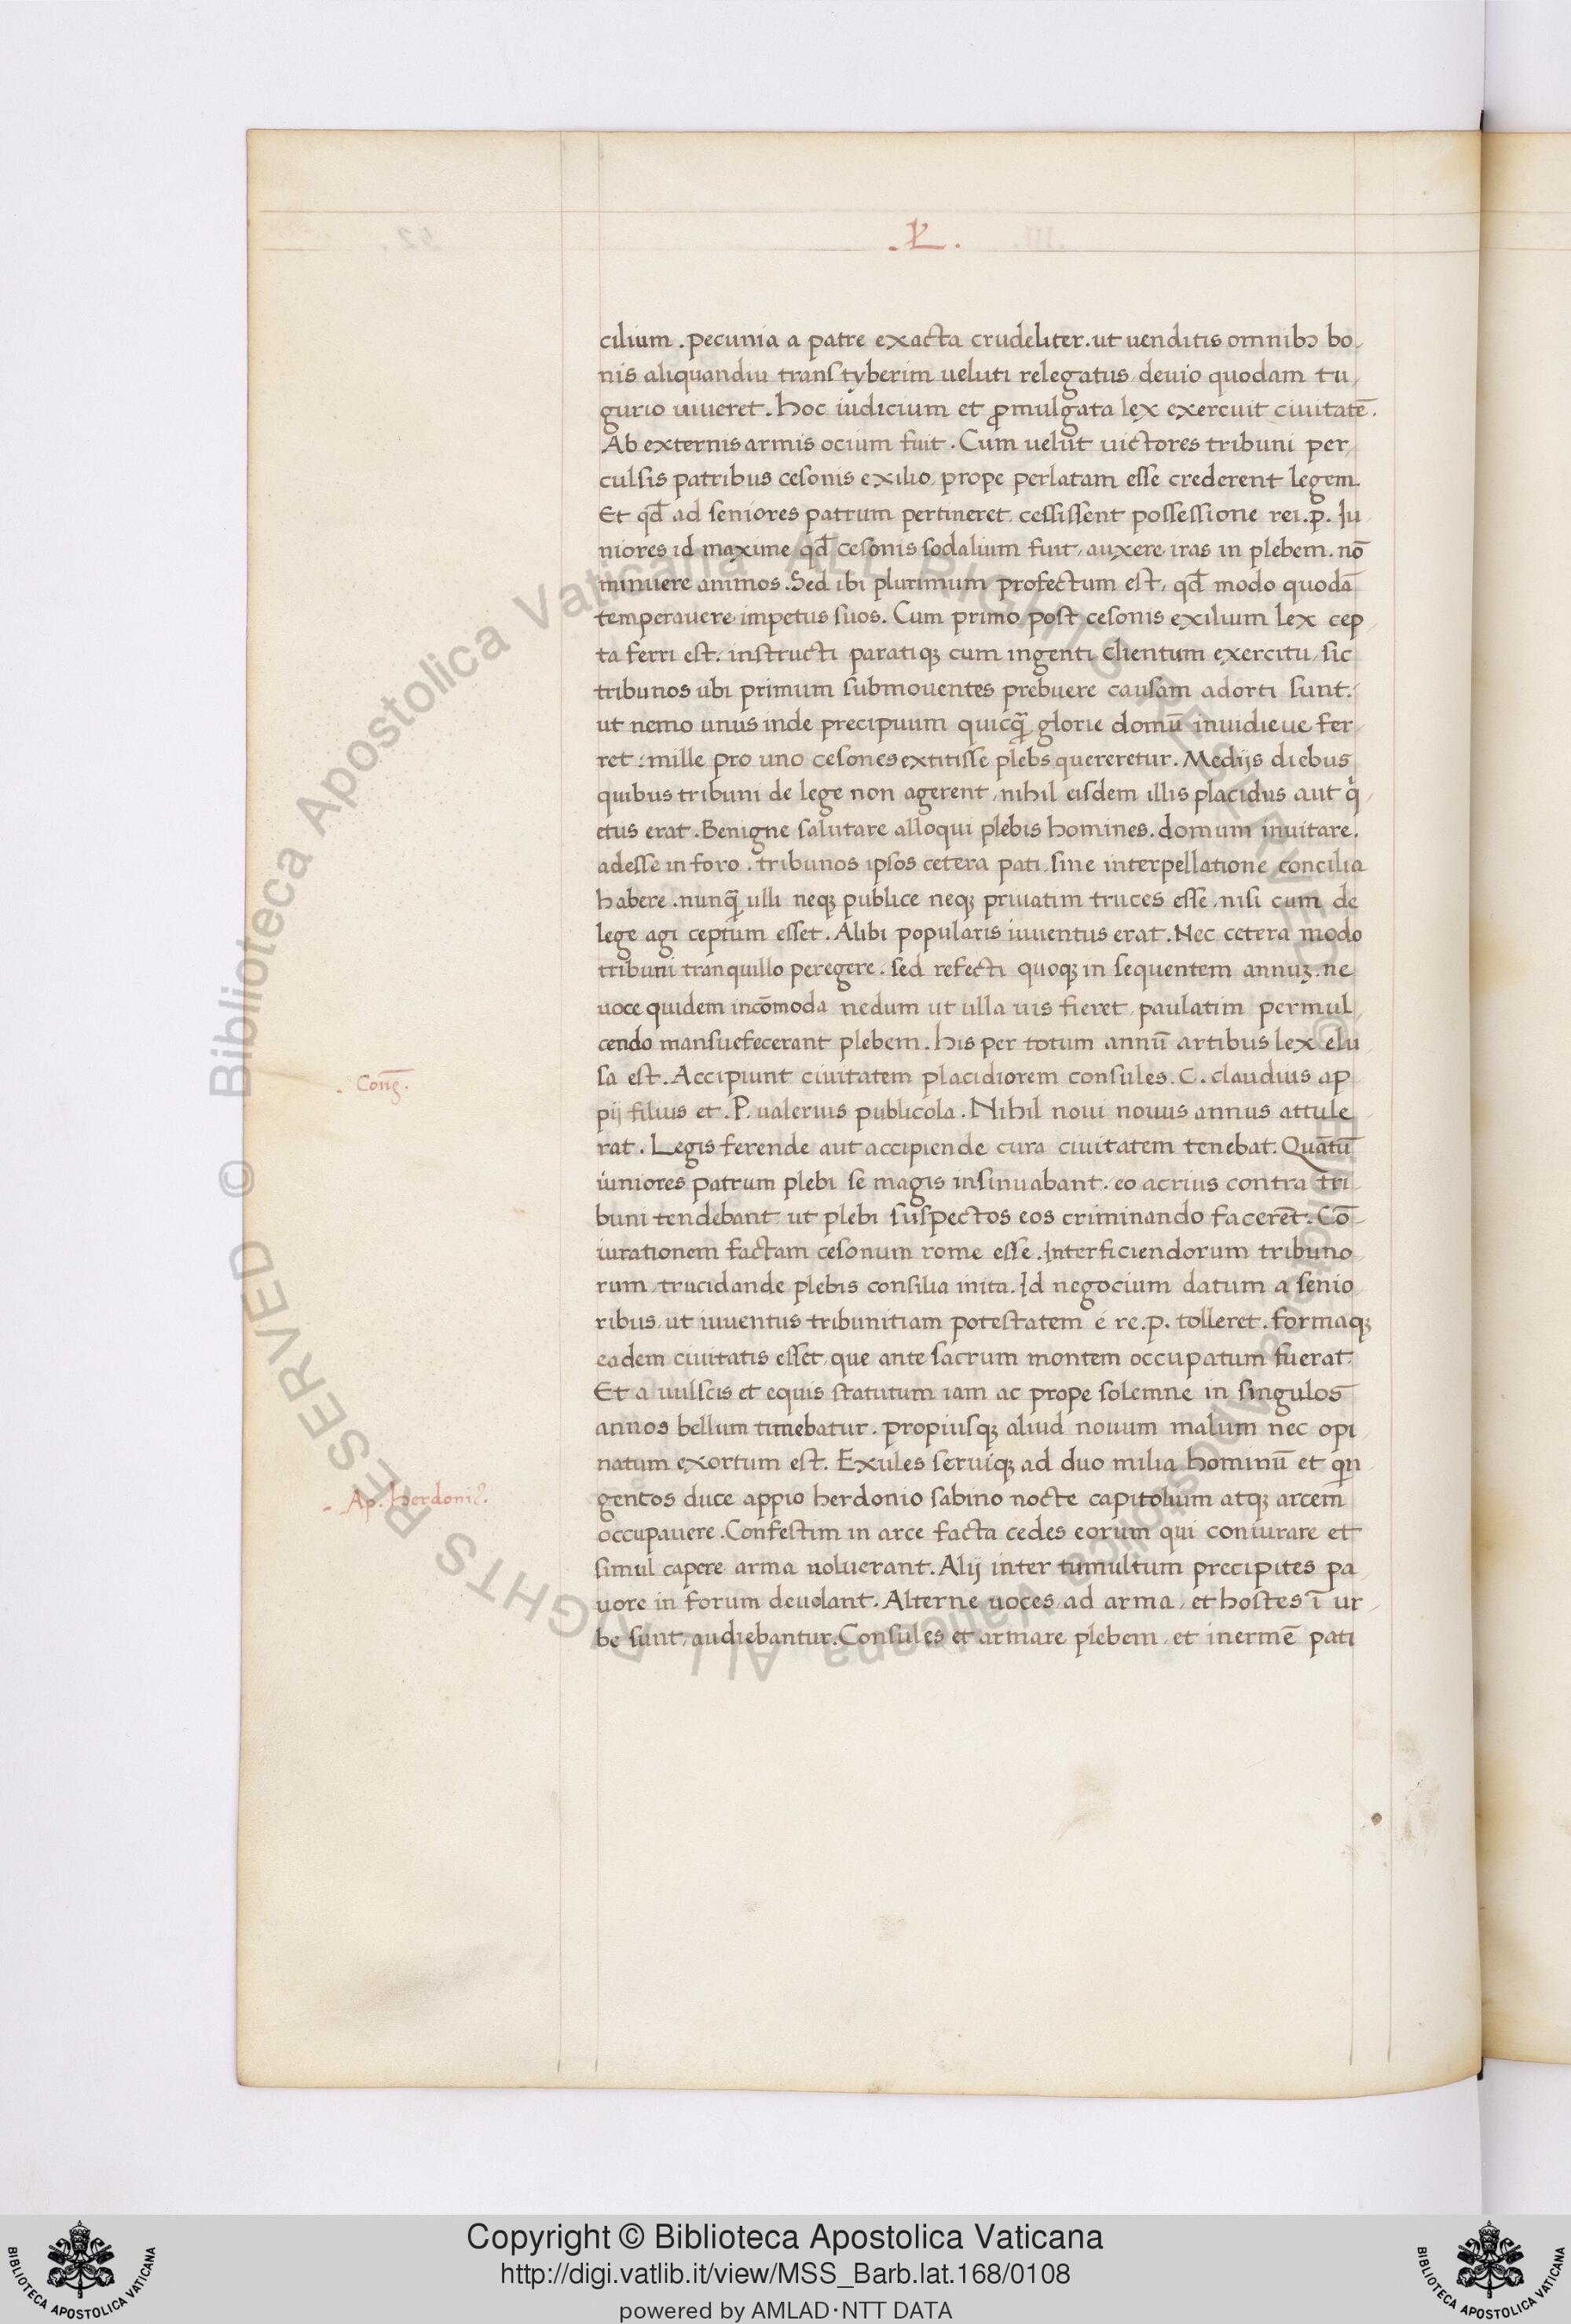 .L.
cilium . pecunia a patre exacta crudeliter . ut uenditis omnibꝫ bo
nis aliquandiu transtyberim ueluti relegatus deuio quodam tu
gurio uiueret . hoc iudicium et ꝓmulgata lex exercuit ciuitatē .
Ab externis armis ocium fuit . Cum uelut uictores tribuni per
culsis patribus cesonis exilio prope perlatam esse crederent legem .
Et qd̄ ad seniores patrum pertineret cessissent possessione rei . p . Iu
niores id maxime qd̄ cesonis sodalium fuit auxere iras in plebem . nō
minuere animos . Sed ibi plurimum profectum est , qd̄ modo quodā
temperauere impetus suos . Cum primo post cesonis exilium lex cep
ta ferri est . instructi paratiqꝫ cum ingenti clientum exercitu , sic
tribunos ubi primum submouentes prebuere causam adorti sunt .
ut nemo unus inde precipuum quicq̄ glorie domū inuidie ue fer
ret : mille pro uno cesones extitisse plebs quereretur . Medijs diebus
quibus tribuni de lege non agerent , nihil eisdem illis placidus aut qͥ
etus erat . Benigne salutare alloqui plebis homines . domum inuitare .
adesse in foro . tribunos ipsos cetera pati , sine interpellatione concilia
habere . nunq̄ ulli neqꝫ publice neqꝫ priuatim truces esse . nisi cum de
lege agi ceptum esset . Alibi popularis iuuentus erat . Nec cetera modo
tribuni tranquillo peregere . sed refecti quoqꝫ in sequentem annuꝫ . ne
uoce quidem incōmoda nedum ut ulla uis fieret paulatim permul
cendo mansuefecerant plebem . his per totum annū artibus lex elu
sa est . Accipiunt ciuitatem placidiorem consules . C . claudius ap
pij filius et . P . ualerius publicola . Nihil noui nouus annus attule
rat . Legis ferende aut accipiende cura ciuitatem tenebat . Quātū
iuniores patrum plebi se magis insinuabant . eo acrius contra tri
buni tendebant ut plebi suspectos eos criminando facerēt . Cō
iurationem factam cesonum rome esse . Interficiendorum tribuno
rum , trucidande plebis consilia inita . Id negocium datum a senio
ribus , ut iuuentus tribunitiam potestatem e re . p . tolleret . formaqꝫ
eadem ciuitatis esset , que ante sacrum montem occupatum fuerat .
Et a uulscis et equis statutum iam ac prope solemne in singulos
annos bellum timebatur . propiusqꝫ aliud nouum malum nec opi
natum exortum est . Exules seruiqꝫ ad duo milia hominū et qͥn
gentos duce appio herdonio sabino nocte capitolium atqꝫ arcem
occupauere . Confestim in arce facta cedes eorum qui coniurare et
simul capere arma noluerant . Alij inter tumultum precipites pa
uore in forum deuolant . Alterne uoces ad arma , et hostes ī ur
be sunt , audiebantur . Consules et armare plebem , et inermē pati
Ap. herdoni⁹.
© Biblioteca Apostolica Vaticana ALL RIGHTS RESERVED
© Biblioteca Apostolica Vaticana ALL RIGHTS RESERVED
Copyright © Biblioteca Apostolica Vaticana
http://digi.vatlib.it/view/MSS_Barb.lat.168/0108
powered by AMLAD·NTT DATA
BIBLIOTECA APOSTOLICA VATICANA
BIBLIOTECA APOSTOLICA VATICANA